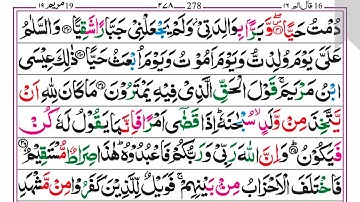 ١٩ مریم ١٩ 278 ٢٧٨ قال الم ١٦ 16
دُمْتُ حَيًّا ۝ وَّبَرًّۢا بِوَالِدَتِيْ وَلَمْ يَجْعَلْنِيْ جَبَّارًا شَقِيًّا ۝ وَالسَّلٰمُ
عَلَيَّ يَوْمَ وُلِدْتُّ وَيَوْمَ اَمُوْتُ وَيَوْمَ اُبْعَثُ حَيًّا ۝ ذٰلِكَ عِيْسَى
ابْنُ مَرْيَمَ ۚ قَوْلَ الْحَقِّ الَّذِيْ فِيْهِ يَمْتَرُوْنَ ۝ مَا كَانَ لِلّٰهِ اَنْ
يَّتَّخِذَ مِنْ وَّلَدٍ ۙ سُبْحٰنَهٗ ؕ اِذَا قَضٰٓى اَمْرًا فَاِنَّمَا يَقُوْلُ لَهٗ كُنْ
فَيَكُوْنُ ۝ وَاِنَّ اللّٰهَ رَبِّيْ وَرَبُّكُمْ فَاعْبُدُوْهُ ؕ هٰذَا صِرَاطٌ مُّسْتَقِيْمٌ ۝
فَاخْتَلَفَ الْاَحْزَابُ مِنْۢ بَيْنِهِمْ ۚ فَوَيْلٌ لِّلَّذِيْنَ كَفَرُوْا مِنْ مَّشْهَدِ